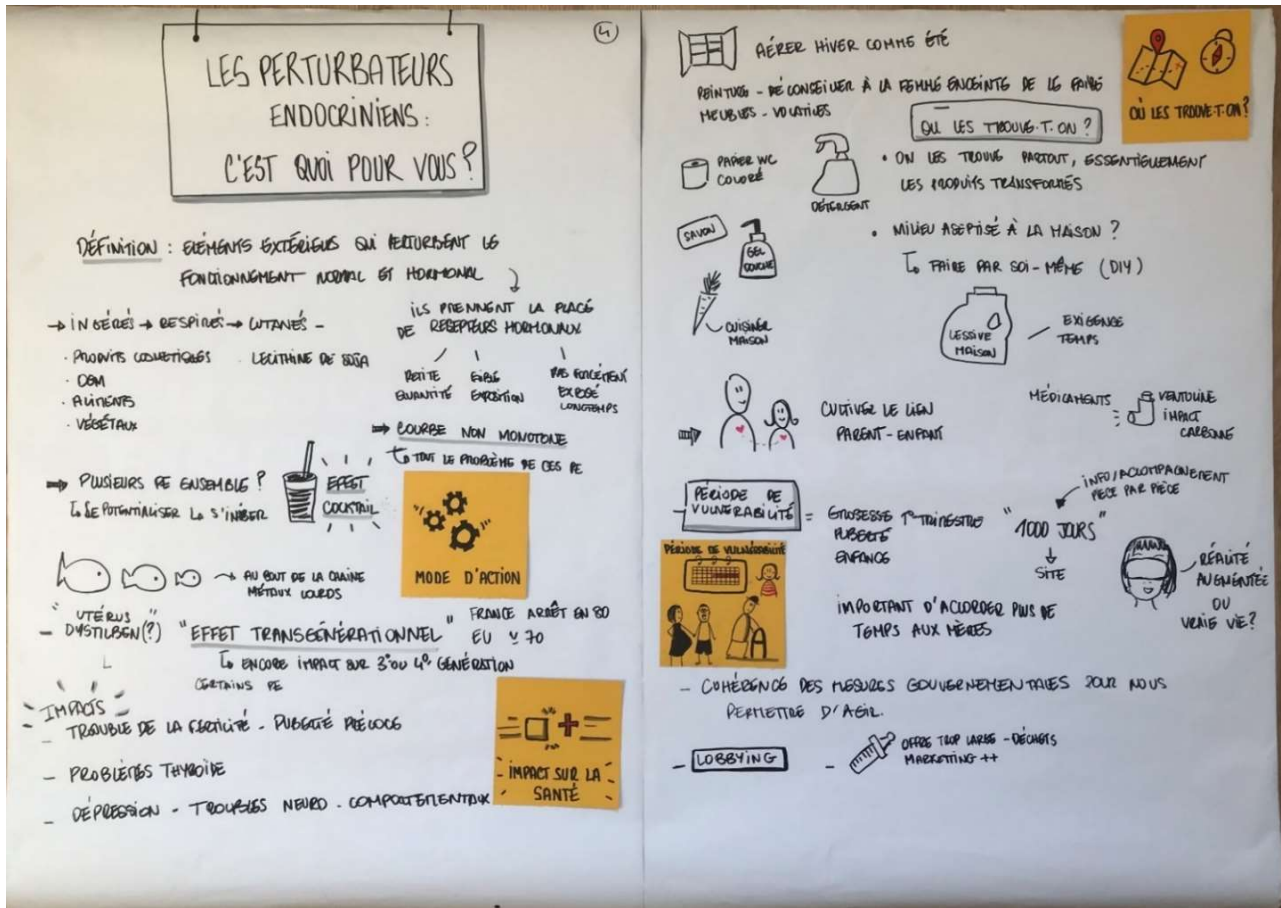 4
LES PERTURBATEURS
ENDOCRINIENS :
C'EST QUOI POUR VOUS ?
DÉFINITION : ELÉMENTS EXTÉRIEURS QUI PERTURBENT LE
FONCTIONNEMENT NORMAL ET HORMONAL
→ INGÉRÉS → RESPIRÉS → CUTANÉS -
· PRODUITS COSMETIQUES · LECITHINE DE SOJA
· OGM
· ALIMENTS
· VÉGÉTAUX
ILS PRENNENT LA PLACE
DE RECEPTEURS HORMONAUX
PETITE QUANTITÉ
FAIBLE EXPOSITION
PAS FORCÉMENT EXPOSÉ LONGTEMPS
⇒ COURBE NON MONOTONE
↳ TOUT LE PROBLÈME DE CES PE
⇒ PLUSIEURS PE ENSEMBLE ?
↳ SE POTENTIALISER ↳ S'INIBER
EFFET
COCKTAIL
MODE D'ACTION
→ AU BOUT DE LA CHAINE
MÉTAUX LOURDS
"UTÉRUS"
- DYSTILBEN (?) "EFFET TRANSGÉNÉRATIONNEL" FRANCE ARRÊT EN 80
EU 70
↳ ENCORE IMPACT SUR 3° OU 4° GÉNÉRATION
CERTAINS PE
IMPACTS
- TROUBLE DE LA FERTILITÉ - PUBERTÉ PRÉCOCE
- PROBLÈMES THYROÏDE
- DÉPRESSION - TROUBLES NEURO - COMPORTEMENTAUX
- IMPACT SUR LA -
SANTÉ
AÉRER HIVER COMME ÉTÉ
PEINTURE - DÉCONSEILLER À LA FEMME ENCEINTE DE LE FAIRE
MEUBLES - VOLATILES
OÙ LES TROUVE-T-ON ?
OU LES TROUVE-T-ON ?
PAPIER WC
COLORÉ
DÉTERGENT
• ON LES TROUVE PARTOUT, ESSENTIELLEMENT
LES PRODUITS TRANSFORMÉS
SAVON
GEL
DOUCHE
• MILIEU ASEPTISÉ À LA MAISON ?
↳ FAIRE PAR SOI-MÊME (DIY)
CUISINER
MAISON
LESSIVE
MAISON
EXIGENCE
TEMPS
CULTIVER LE LIEN
PARENT - ENFANT
MÉDICAMENTS
VENTOLINE
IMPACT
CARBONE
- PÉRIODE DE
VULNÉRABILITÉ = GROSSESSE 1er TRIMESTRE
PUBERTÉ
ENFANCE
INFO/ACCOMPAGNEMENT
PIÈCE PAR PIÈCE
"1000 JOURS"
↓
SITE
RÉALITÉ
AUGMENTÉE
OU
VRAIE VIE ?
PÉRIODE DE VULNÉRABILITÉ
IMPORTANT D'ACCORDER PLUS DE
TEMPS AUX MÈRES
- COHÉRENCE DES MESURES GOUVERNEMENTALES POUR NOUS
PERMETTRE D'AGIR.
- LOBBYING
- OFFRE TROP LARGE - DÉCHETS
MARKETTING ++